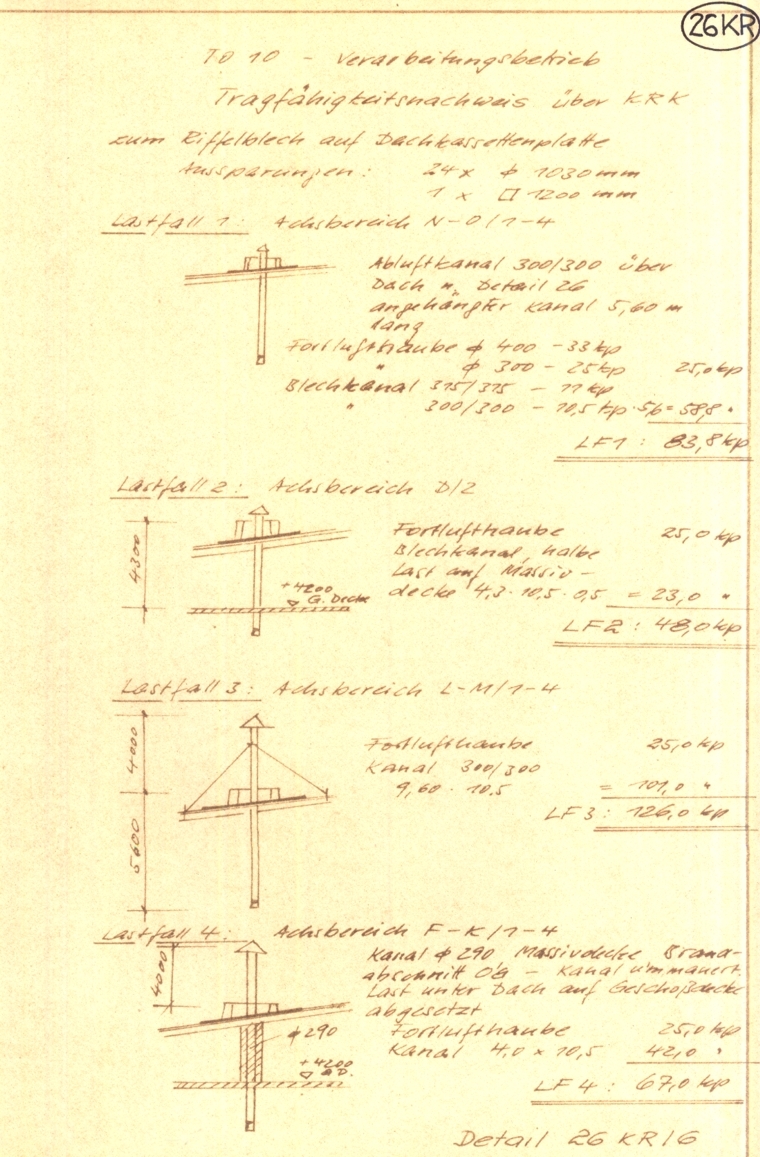 26KR
TO 10 - Verarbeitungsbetrieb
Tragfähigkeitsnachweis über KRK
zum Riffelblech auf Dachkassettenplatte
Aussparungen: 24 x ϕ 1030 mm
1 x □ 1200 mm
Lastfall 1: Achsbereich N-O/1-4
Abluftkanal 300/300 über
Dach n. Detail 26
angehängter Kanal 5,60 m
lang
Fortlufthaube ϕ 400 - 33 kp
" ϕ 300 - 25 kp 25,0 kp
Blechkanal 315/315 - 11 kp
" 300/300 - 10,5 kp · 5,6 = 58,8 "
LF1: 83,8 kp
Lastfall 2: Achsbereich D/2
4300
Fortlufthaube 25,0 kp
Blechkanal, halbe
Last auf Massiv-
decke 4,3 · 10,5 · 0,5 = 23,0 "
+4200
G. Decke
LF2: 48,0 kp
Lastfall 3: Achsbereich L-M/1-4
4000
5600
Fortlufthaube 25,0 kp
Kanal 300/300
9,60 · 10,5 = 101,0 "
LF3: 126,0 kp
Lastfall 4: Achsbereich F-K/1-4
4000
Kanal ϕ 290 Massivdecke Brand-
abschnitt OG - Kanal ummauert.
Last unter Dach auf Geschoßdecke
abgesetzt
ϕ 290
Fortlufthaube 25,0 kp
Kanal 4,0 x 10,5 42,0 "
+4200
LF4: 67,0 kp
Detail 26 KR/6